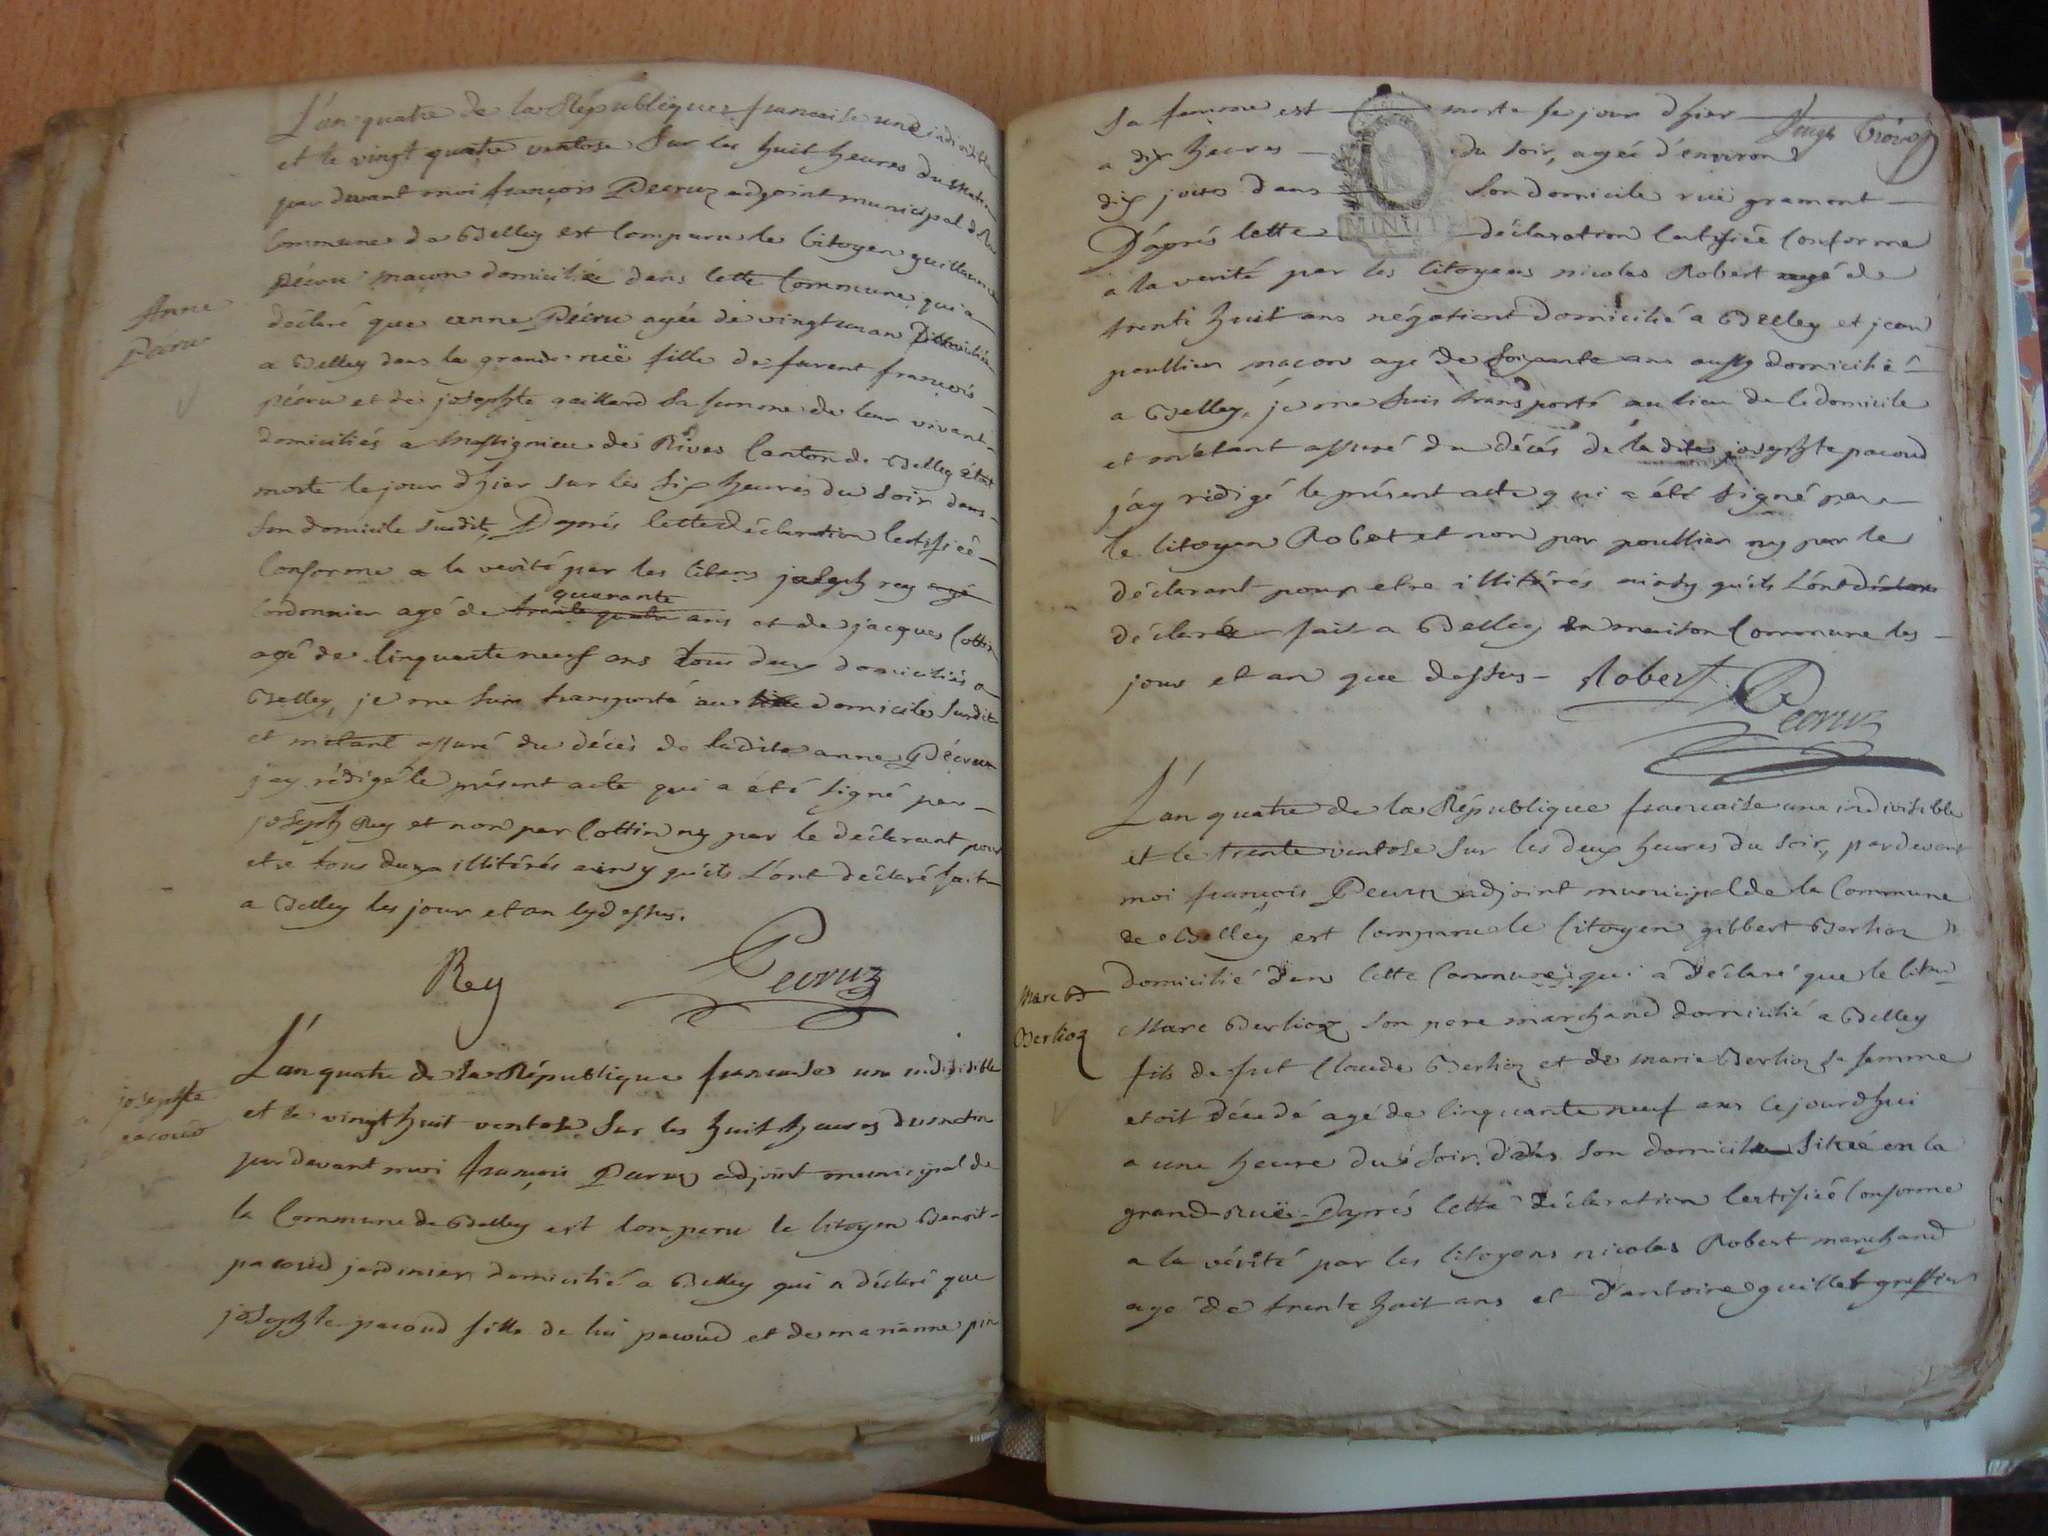 L'an quatre de la République francaise une indivisible
et le vingt quatre ventose Sur les huit heures du matin
par devant moi françois Pecruz adjoint municipal de la
Commune de Belley est Comparu le Citoyen guillaume
Pécru maçon domicilié dans Cette Commune qui a
Anne
Pécru
déclaré que anne Pécru agée de vingt un an Domiciliée
a Belley dans la grande ruë fille de furent françois
pécru et de josephte gaillard Sa femme de leur vivant
domiciliés a Massignieu de Rives Canton de Belley était
morte le jour d'hier sur les Six heures du Soir dans
Son domicile susdit, D'après Cette déclaration Certifiée
Conforme a la verité par les Citoyens joseph rey agé
quarante
Cordonnier agé de trente quatre ans et de jacques Cottin
agé de Cinquante neuf ans tous deux domiciliés a
Belley, je me Suis transporté au domicile Susdit
et m'etant assuré du décès de ladite anne Pécru
j'ay rédigé le présent acte qui a été Signé par
joseph Rey et non par Cottin ny par le déclarant pour
etre tous deux illitérés ainsy qu'ils L'ont déclaré fait
a Belley les jour et an Cy dessus.
Rey Pecruz
josephte
pacoud
L'an quatre de la République francaise une indivisible
et le vingt huit ventose Sur les huit heures du matin
par devant moi françois Pecruz adjoint municipal de
la Commune de Belley est Comparu le Citoyen Benoit
pacoud jardinier domicilié a Belley qui a déclaré que
josephte pacoud fille de lui pacoud et de marianne
Sa femme est morte le jour d'hier
a dix heures du Soir, agée d'environ
dix jours dans Son domicile ruë gramont
MINUTE
D'après Cette déclaration Certifiée Conforme
a la verité par les Citoyens nicolas Robert agé de
trente huit ans négotiant Domicilié a Belley et jean
poullier maçon agé de Soixante ans aussy domicilié
a Belley, je me Suis transporté au lieu de Ce domicile
et m'etant assuré du décès de la dite josephte pacoud
j'ay rédigé le présent acte qui a été signé par
le Citoyen Robert et non par poullier ny par le
déclarant pour etre illitérés ainsy qu'ils L'ont déclaré
déclaré fait a Belley en maison Commune les
jour et an que dessus Robert Pecruz
L'an quatre de la République francaise une indivisible
et le trente ventose Sur les deux heures du Soir, par devant
moi françois Pecruz adjoint municipal de la Commune
de Belley est Comparu le Citoyen gilbert Berlioz
domicilié dans Cette Commune qui a déclaré que le Citoyen
Marc
Berlioz
Marc Berlioz Son pere marchand domicilié a Belley
fils de fut Claude Berlioz et de marie Berlioz Sa femme
etoit décédé agé de Cinquante neuf ans Ce jourd'hui
a une heure du Soir dans Son domicile Situé en la
grand Ruë D'après Cette déclaration Certifiée Conforme
a la vérité par les Citoyens nicolas Robert marchand
agé de trente huit ans et d'antoine guillet greffier